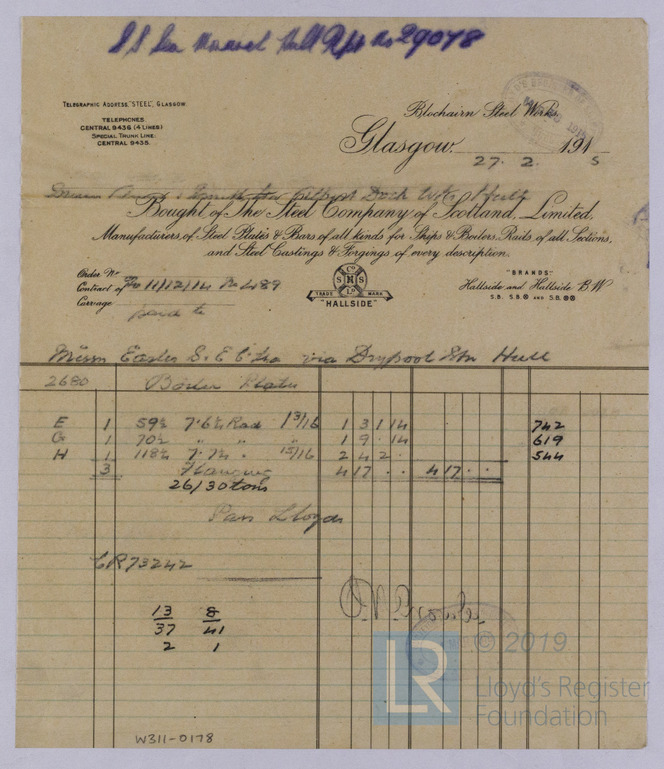 Rpt No 29078
TELEGRAPHIC ADDRESS, "STEEL", GLASGOW
TELEPHONES
CENTRAL 9436 (4 LINES)
SPECIAL TRUNK LINE
CENTRAL 9435.
Blochairn Steel Works,
Glasgow, 27. 2. 1915
Dock
Bought of The Steel Company of Scotland, Limited,
Manufacturers of Steel Plates & Bars of all kinds for Ships & Boilers, Rails of all Sections,
and Steel Castings & Forgings of every description.
Order No
Contract of 11/12/14 No 489
Carriage paid to
Co
S H S
LD
TRADE MARK
"HALLSIDE"
"BRANDS"
Hallside and Hallside B.W
S.B. S.B. AND S.B.
Messrs Earles S. E. C. via Drypool Stn Hull
2680 Boiler Plates
E 1 59½ 7·6½ Rad 13/16 1 3 1 14 742
G 1 70½ " " " " 1 9 · 14 619
H 1 118½ 7·7½ " 15/16 2 4 2 · 544
3 Flanging 4 17 · · 4 17 · ·
26/30 tons
Pass Lloyds
CR 73242
13 8
37 41
2 1
LR
© 2019
Lloyd's Register
Foundation
W311-0178